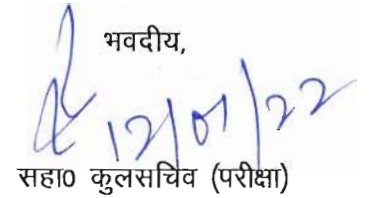 भवदीय,
12/01/22
सहा0 कुलसचिव (परीक्षा)